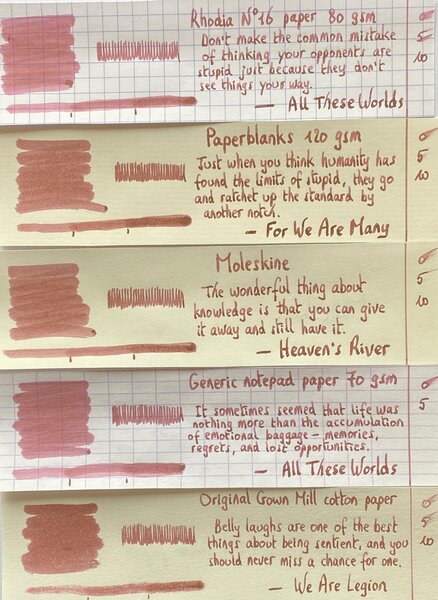 Rhodia N°16 paper 80 gsm
Don't make the common mistake
of thinking your opponents are
stupid just because they don't
see things your way.
— All These Worlds
0
5
10
Paperblanks 120 gsm
Just when you think humanity has
found the limits of stupid, they go
and ratchet up the standard by
another notch.
— For We Are Many
0
5
10
Moleskine
The wonderful thing about
knowledge is that you can give
it away and still have it.
— Heaven's River
0
5
10
Generic notepad paper 70 gsm
It sometimes seemed that life was
nothing more than the accumulation
of emotional baggage – memories,
regrets, and lost opportunities.
— All These Worlds
0
5
Original Crown Mill cotton paper
Belly laughs are one of the best
things about being sentient, and you
should never miss a chance for one.
— We Are Legion
0
5
10